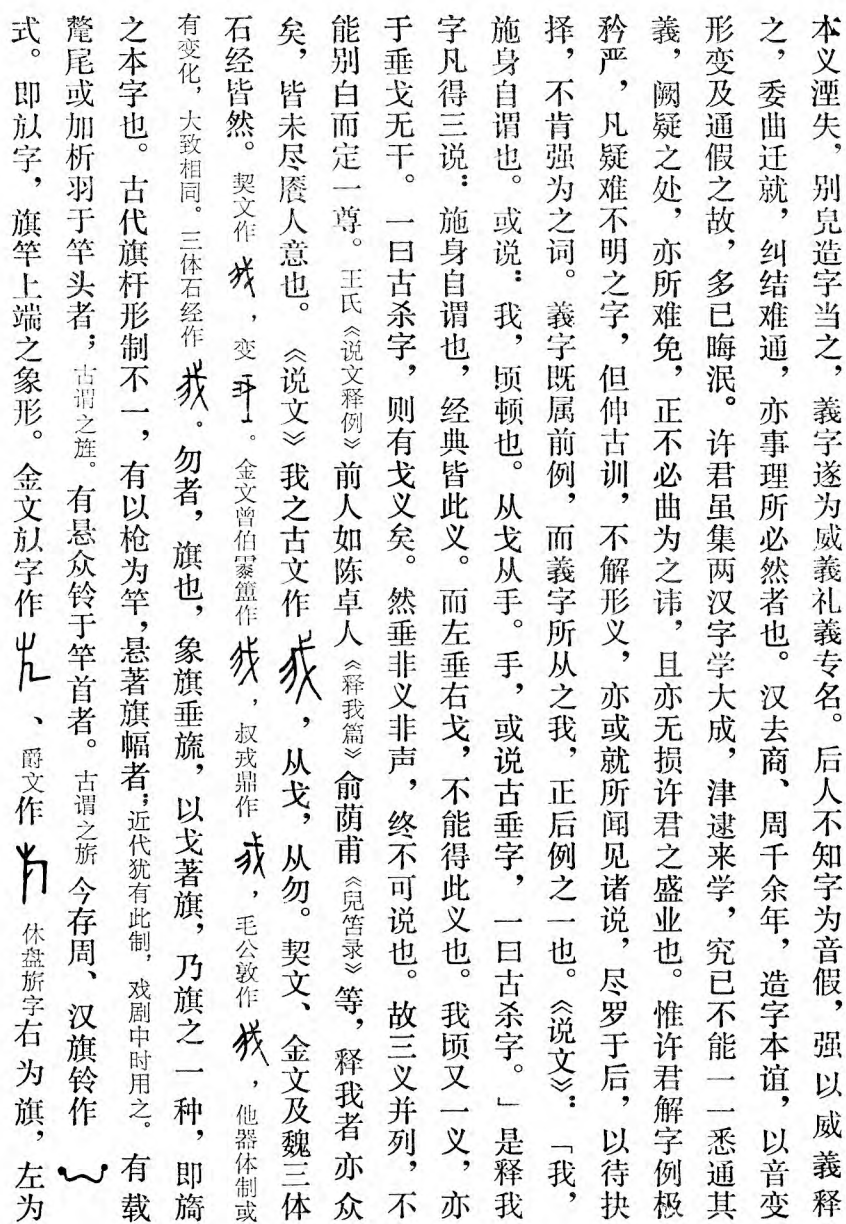 本义湮失，别㒵造字当之，義字遂为威義礼義专名。后人不知字为音假，强以威義释
之，委曲迁就，纠结难通，亦事理所必然者也。汉去商、周千余年，造字本谊，以音变
形变及通假之故，多已晦泯。许君虽集两汉字学大成，津逮来学，究已不能一一悉通其
義，阙疑之处，亦所难免，正不必曲为之讳，且亦无损许君之盛业也。惟许君解字例极
矜严，凡疑难不明之字，但伸古训，不解形义，亦或就所闻见诸说，尽罗于后，以待抉
择，不肯强为之词。義字既属前例，而義字所从之我，正后例之一也。《说文》：「我，
施身自谓也。或说：我，顷顿也。从戈从手。手，或说古垂字，一曰古杀字。」是释我
字凡得三说：施身自谓也，经典皆此义。而左垂右戈，不能得此义也。我顷又一义，亦
于垂戈无干。一曰古杀字，则有戈义矣。然垂非义非声，终不可说也。故三义并列，不
能别白而定一尊。王氏《说文释例》前人如陈卓人《释我篇》俞荫甫《兒笘录》等，释我者亦众
矣，皆未尽餍人意也。《说文》我之古文作，从戈，从勿。契文、金文及魏三体
石经皆然。契文作，变。金文曾伯霥簠作，叔戎鼎作，毛公敦作，他器体制或
有变化，大致相同。三体石经作。勿者，旗也，象旗垂旒，以戈著旗，乃旗之一种，即旖
之本字也。古代旗杆形制不一，有以枪为竿，悬著旗幅者；近代犹有此制，戏剧中时用之。有载
氂尾或加析羽于竿头者；古谓之旌。有悬众铃于竿首者。古谓之旂今存周、汉旗铃作
式。即㫃字，旗竿上端之象形。金文㫃字作、爵文作休盘旂字右为旗，左为